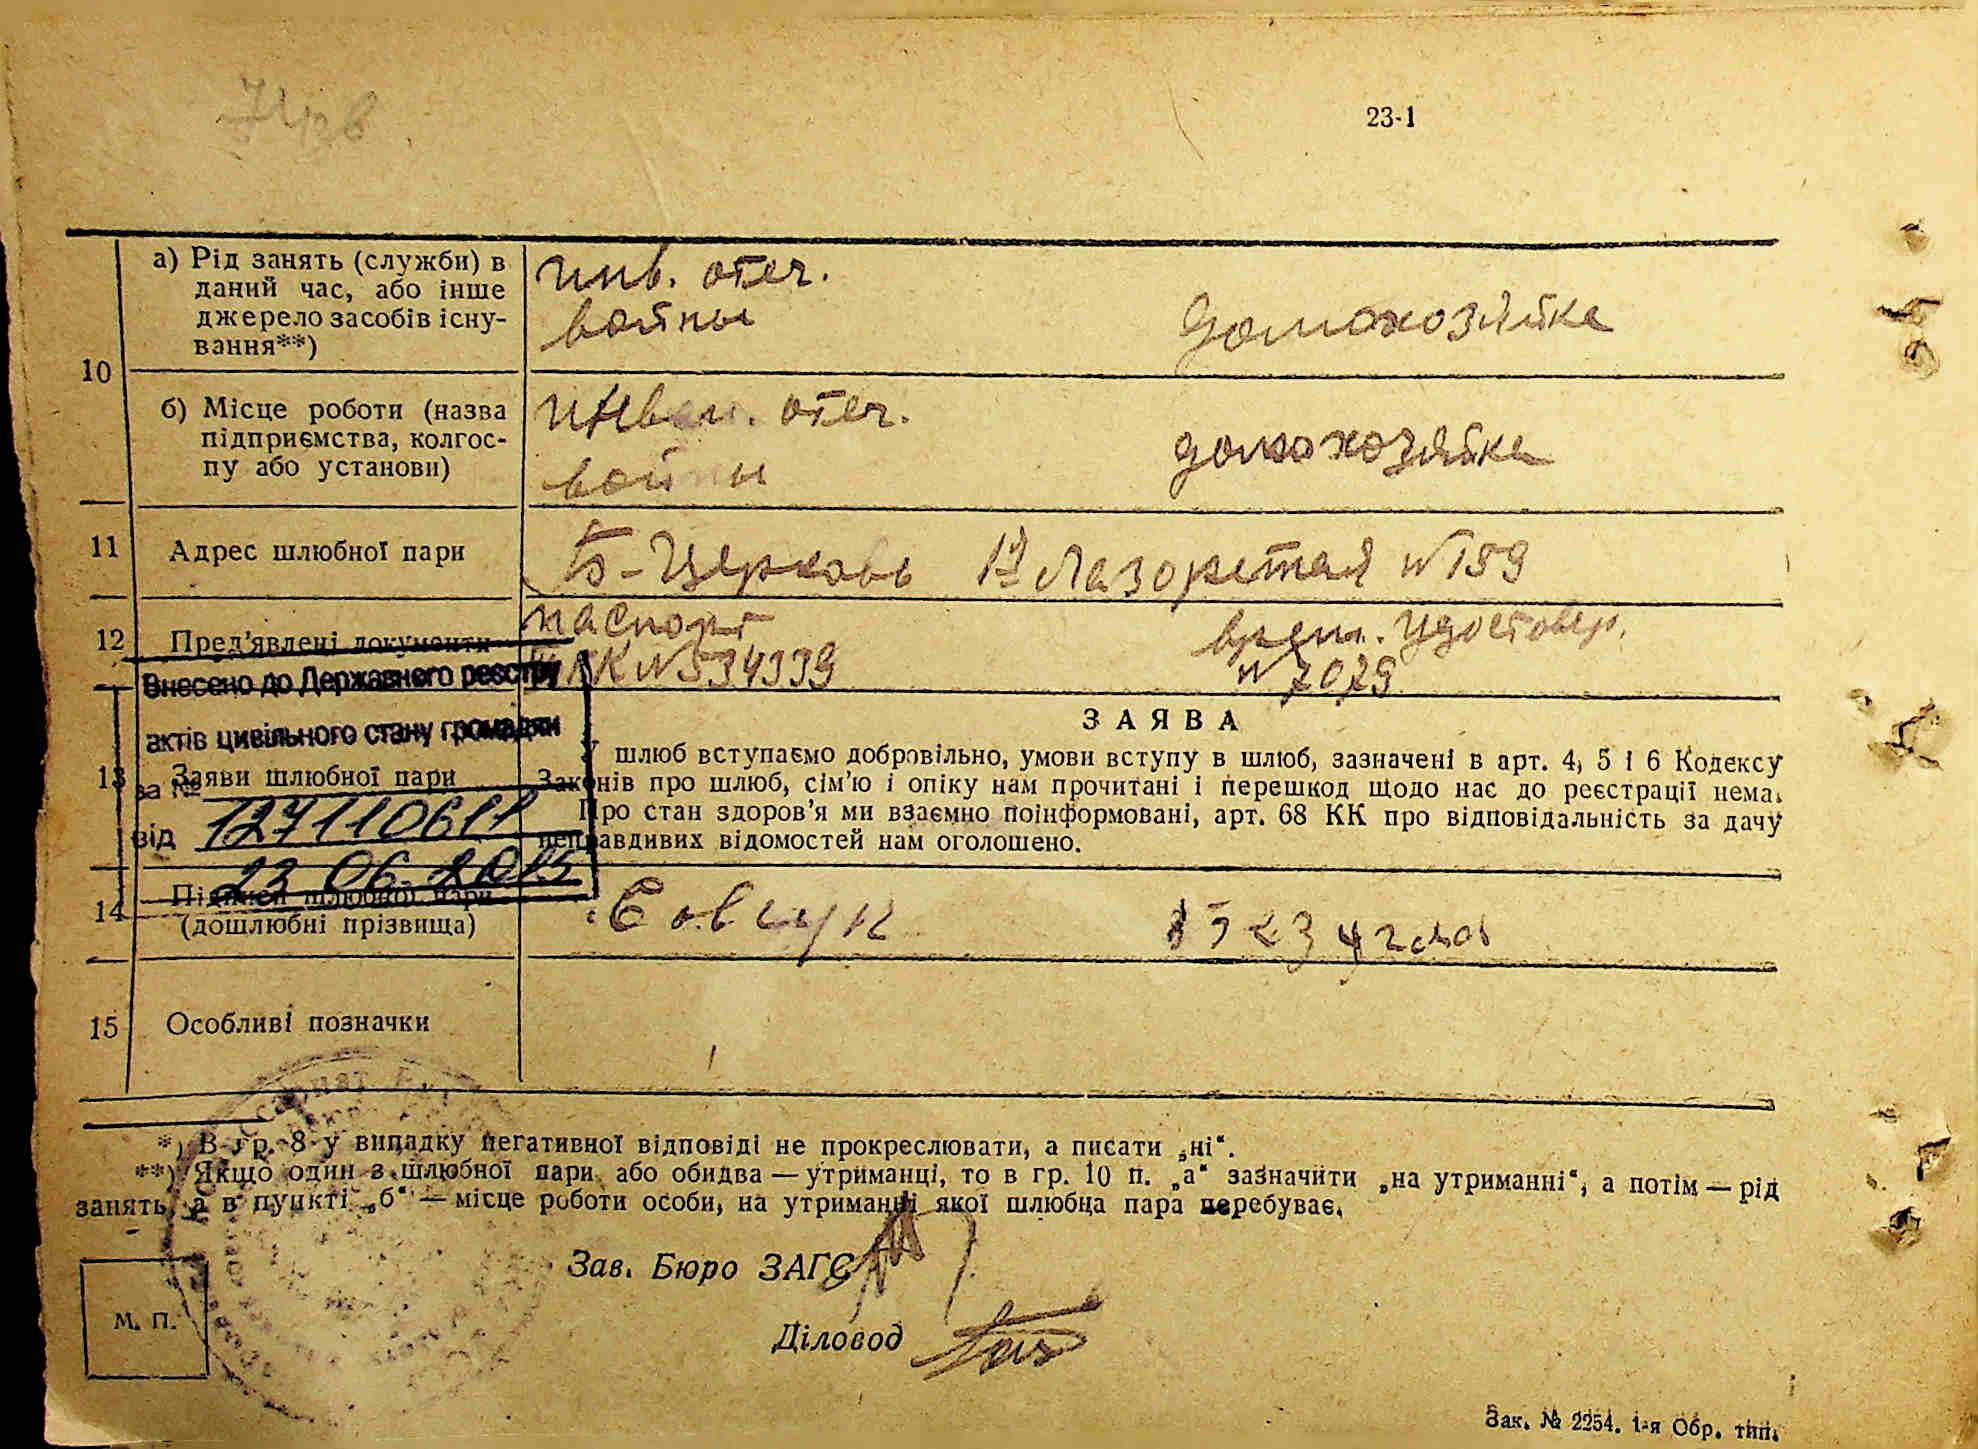 23-1
10
а) Рід занять (служби) в
даний час, або інше
джерело засобів існу-
вання**)
инв. отеч.
войны
домохозяйка
б) Місце роботи (назва
підприємства, колгос-
пу або установи)
инвал. отеч.
войны
домохозяйка
11
Адрес шлюбної пари
Б-Церковь 1я Лазаретная №159
12
Пред'явлені документи
паспорт
№ 534339
врем. удостовер.
№ 7079
Внесено до Державного реєстру
актів цивільного стану громадян
за №
127110611
від
23 06 2015
13
Заяви шлюбної пари
ЗАЯВА
У шлюб вступаємо добровільно, умови вступу в шлюб, зазначені в арт. 4, 5 і 6 Кодексу
Законів про шлюб, сім'ю і опіку нам прочитані і перешкод щодо нас до реєстрації нема.
Про стан здоров'я ми взаємно поінформовані, арт. 68 КК про відповідальність за дачу
неправдивих відомостей нам оголошено.
14
Підписи шлюбної пари
(дошлюбні прізвища)
15
Особливі позначки
*) В гр. 8 у випадку негативної відповіді не прокреслювати, а писати „ні“.
**) Якщо один з шлюбної пари або обидва — утриманці, то в гр. 10 п. „а“ зазначити „на утриманні“, а потім — рід
занять, а в пункті „б“ — місце роботи особи, на утриманні якої шлюбна пара перебуває.
Зав. Бюро ЗАГС
М. П.
Діловод
Зак. № 2254. 1-я Обр. тип.